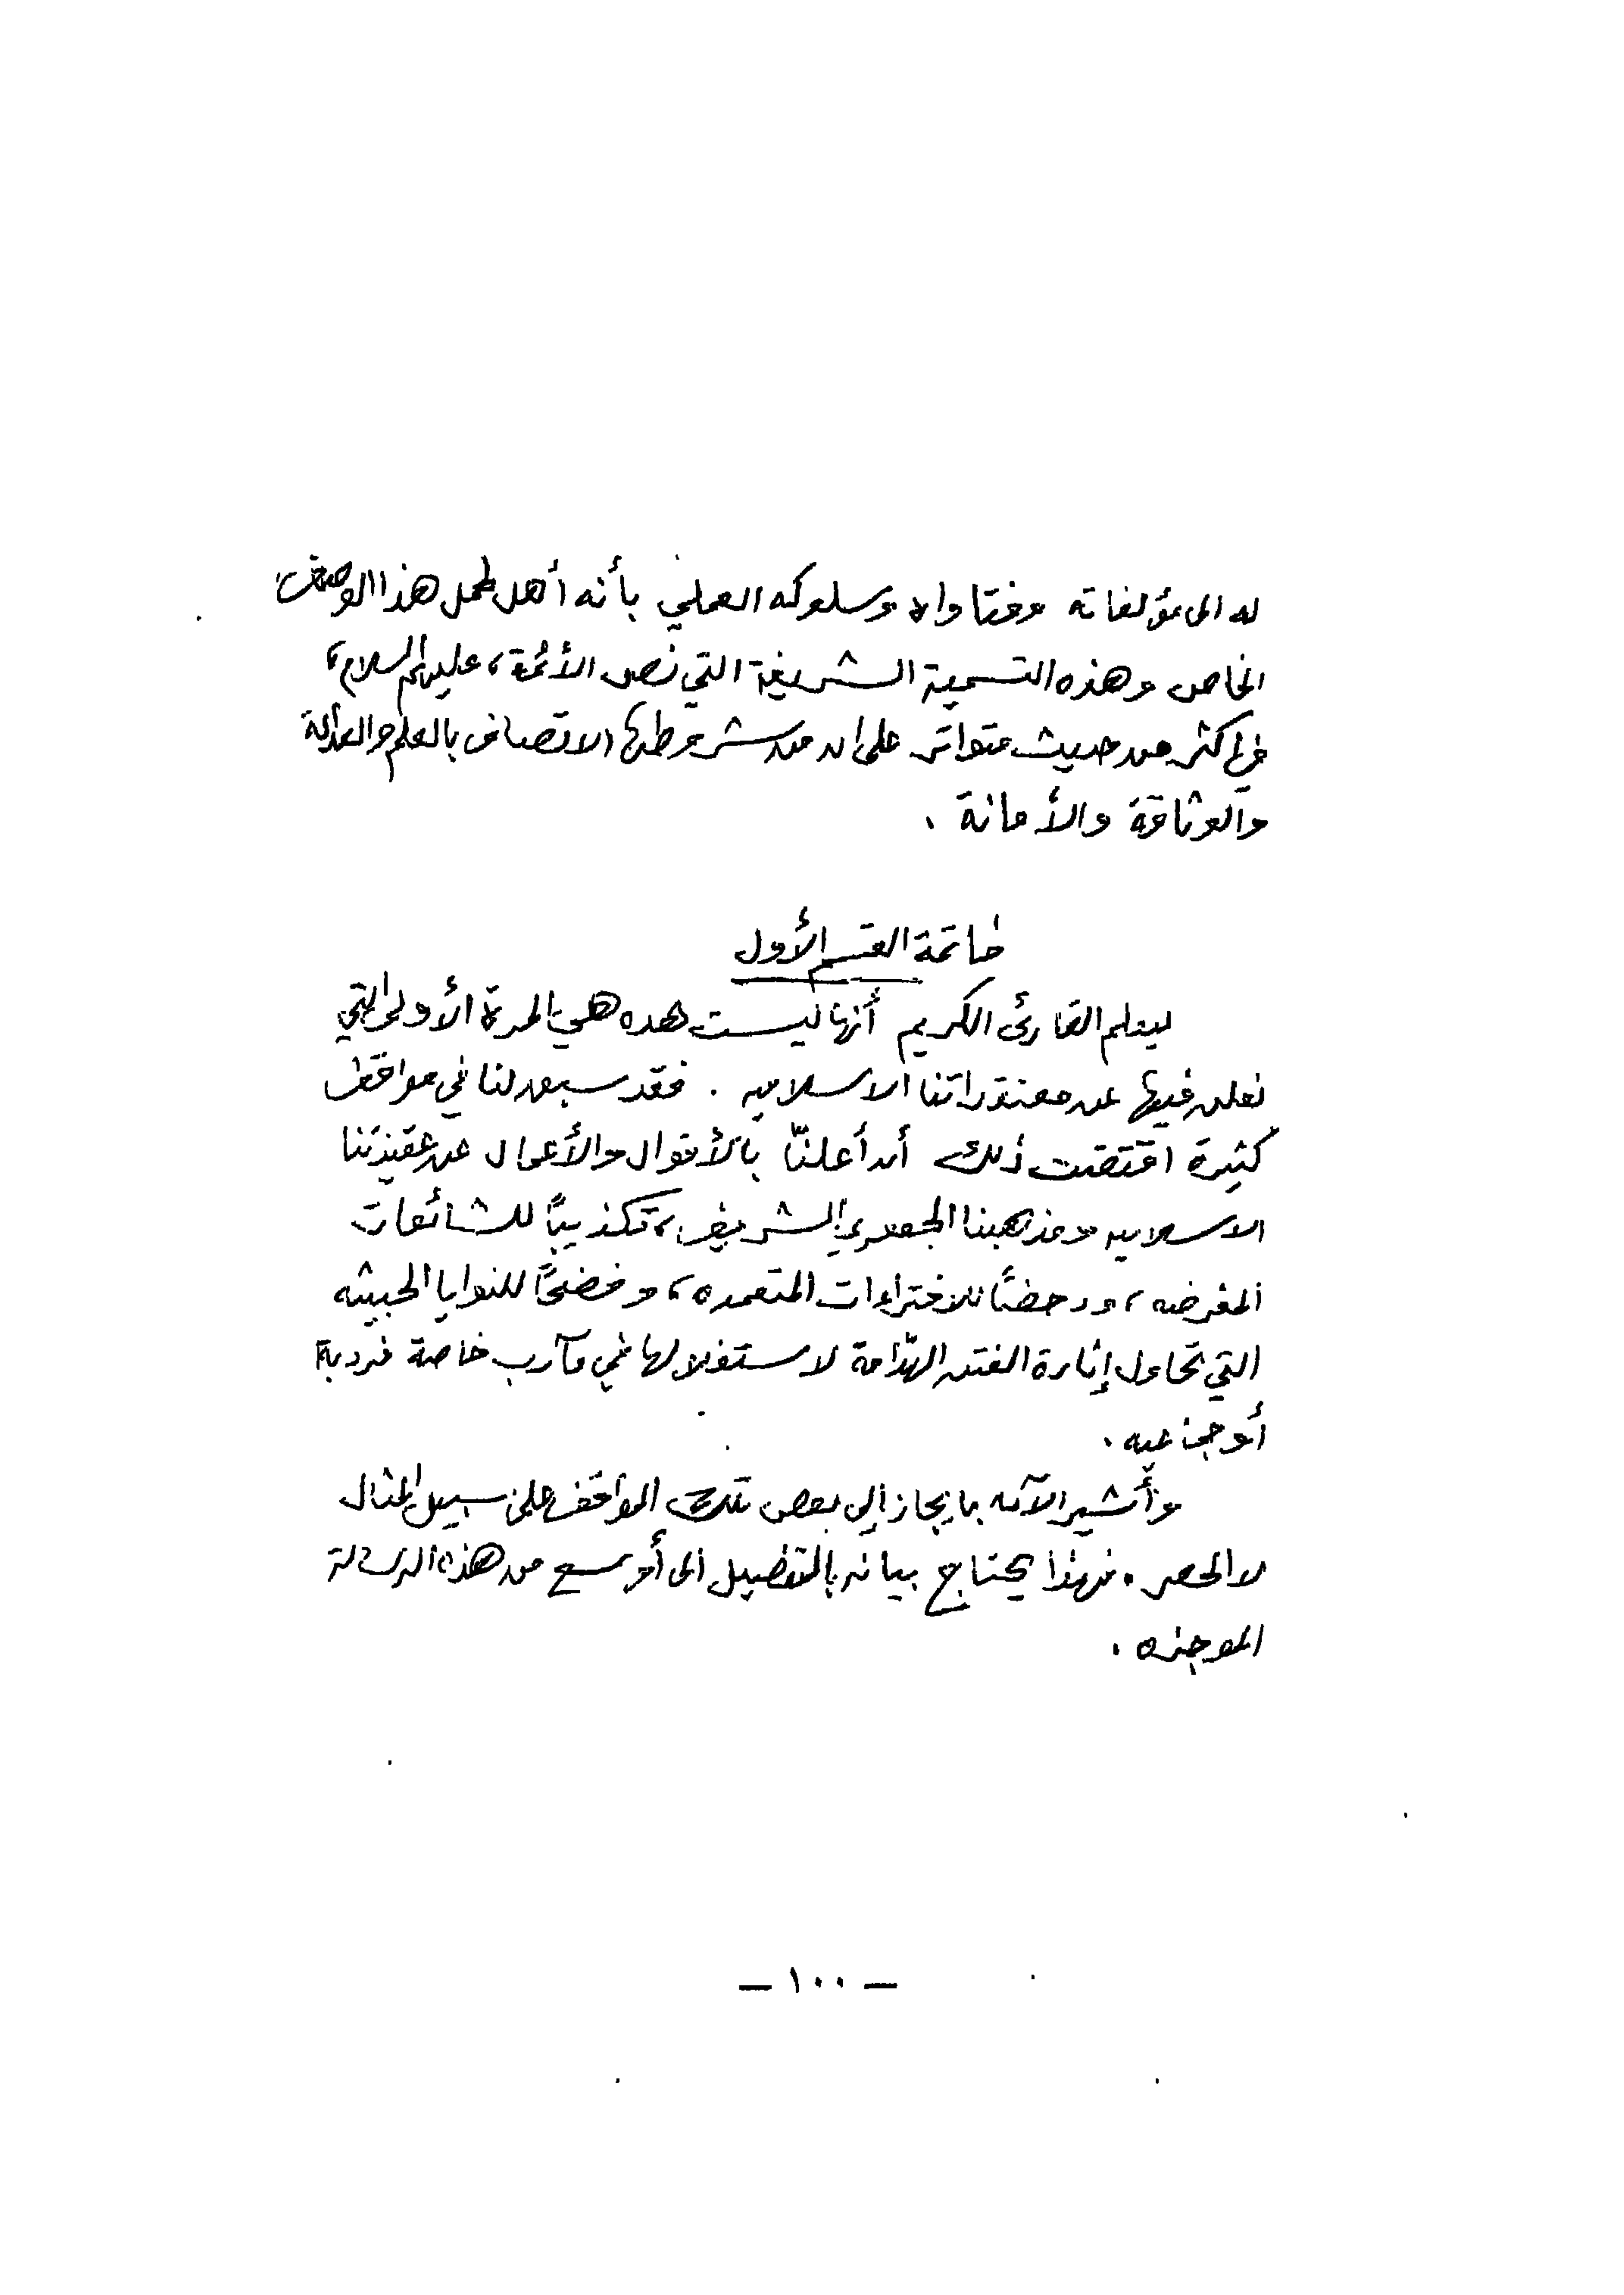 له الى مؤلفاته وفتاواه وسلوكه العملي بأنه أهل لحمل هذا الوصف
الخاص وهذه التسمية الشريفة التي نص الأئمة، عليهم السلام،
في اكثر من حديث متواتر على ان من شروطها الاتصاف بالعلم والعدالة
والوثاقة والأمانة .
خاتمة القسم الأول
ليعلم القارئ الكريم أنها ليست هذه هي المرة الأولى التي
نعلن فيها عن معتقداتنا الاسلاميه . فقد سبق لنا في مواقف
كثيرة اقتضت ذلك أن أعلنّا بالأقوال والأعمال عن عقيدتنا
الاسلاميه ومذهبنا الجعفري الشريف، تكذيباً للشائعات
المغرضه، ودحضاً للافتراءات المتعمده، وفضحاً للنوايا الخبيثه
التي تحاول إثارة الفتن الهدّامة لاستغلالها في مآرب خاصة فردية
أو جماعيه .
وأشير الآن بايجاز إلى بعض تلك المواقف على سبيل المثال
لا الحصر . فهذا يحتاج بيانه بالتفصيل الى أوسع من هذه الرسالة
الموجزه .
— ١٠٠ —